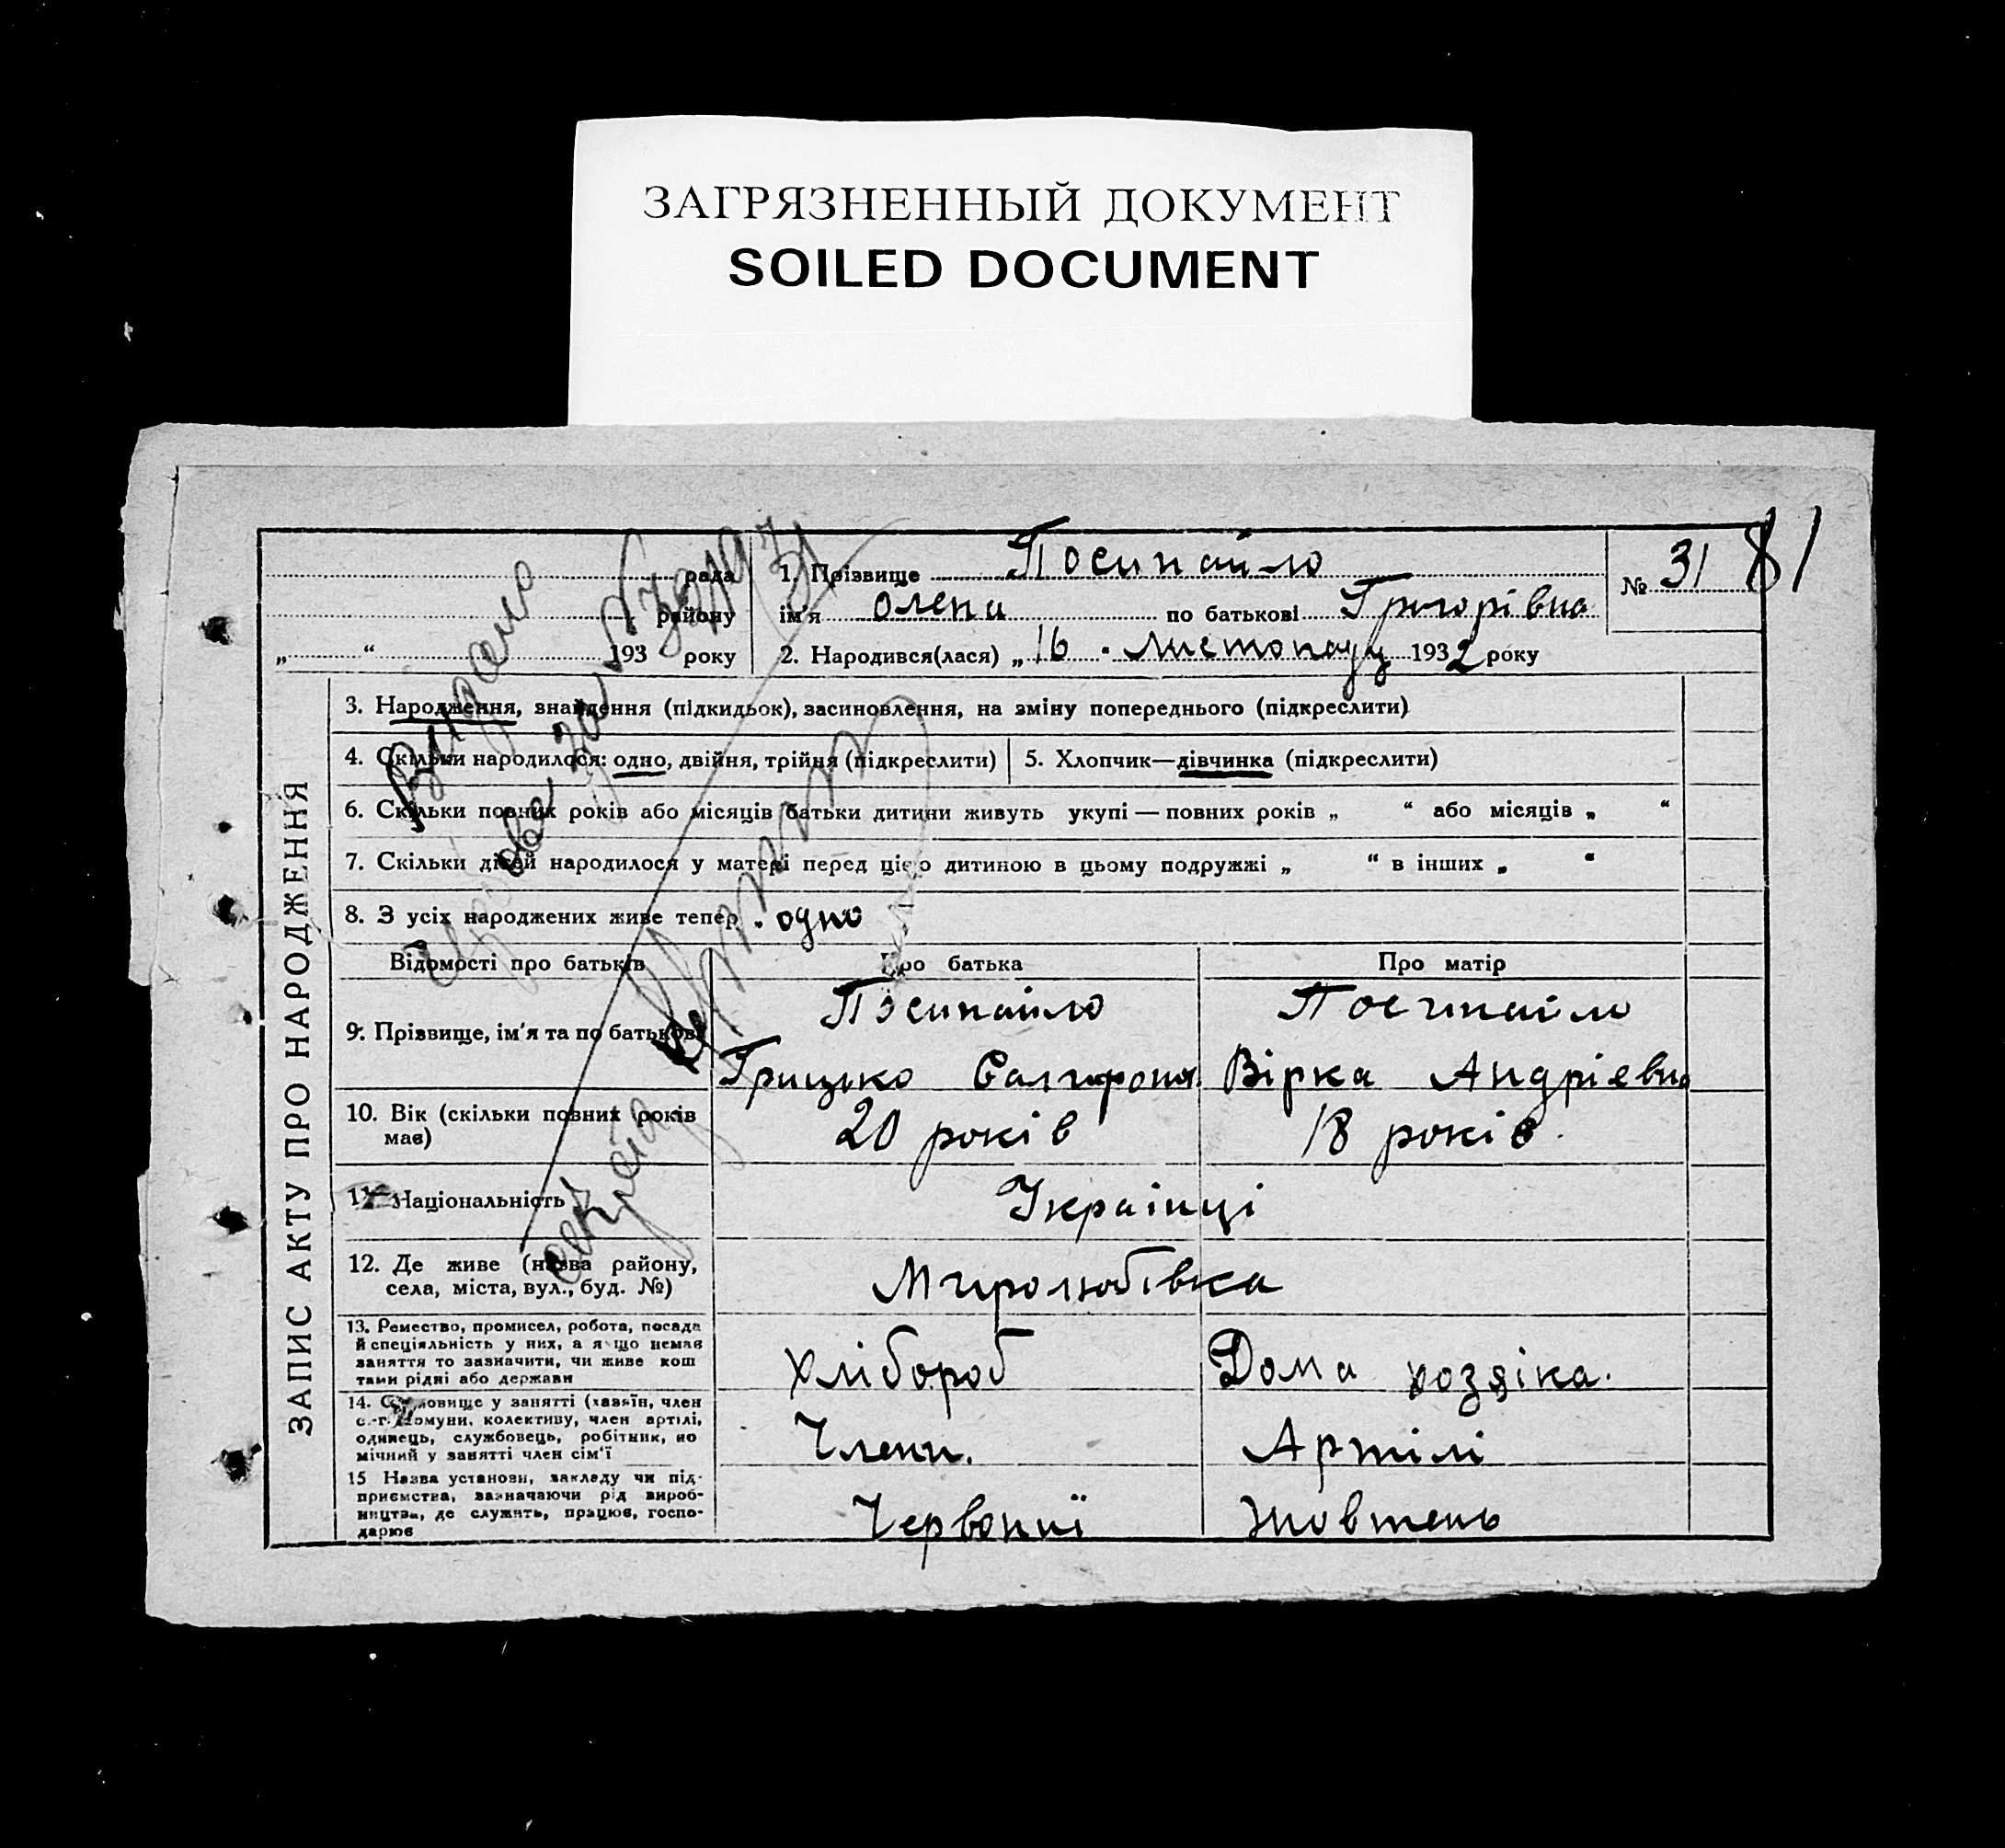 ЗАГРЯЗНЕННЫЙ ДОКУМЕНТ
SOILED DOCUMENT
81
рада
району
„ “ 193 року
1. Прізвище Посипайло
ім'я Олена по батькові Григорівна
№ 31
2. Народився(лася) „16 листопаду 1932 року
ЗАПИС АКТУ ПРО НАРОДЖЕННЯ
3. Народження, знайдення (підкидьок), засиновлення, на зміну попереднього (підкреслити)
4. Скільки народилося: одно, двійня, трійня (підкреслити)
5. Хлопчик—дівчинка (підкреслити)
6. Скільки повних років або місяців батьки дитини живуть укупі — повних років „ “ або місяців „ “
7. Скільки дітей народилося у матері перед цією дитиною в цьому подружжі „ “ в інших „ “
8. З усіх народжених живе тепер одно
Відомості про батьків
Про батька
Про матір
9. Прізвище, ім'я та по батькові
Посипайло
Грицько
Посипайло
Вірка Андріевна
10. Вік (скільки повних років
має)
20 років
18 років
11. Національність
Українці
12. Де живе (назва району,
села, міста, вул., буд. №)
Миролюбівка
13. Ремество, промисел, робота, посада
й спеціяльність у них, а якщо немає
заняття то зазначити, чи живе кош
тами рідні або держави
Хлібороб
Дома хозяіка.
14. Становище у занятті (хазяїн, член
с.-г. комуни, колективу, член артілі,
одинець, службовець, робітник, по
мічний у занятті член сім'ї
Члени.
Артілі
15 Назва установи, закладу чи під-
приємства, зазначаючи рід вироб-
ництва, де служить, працює, госпо-
дарює
Червоний
Жовтень
Видано